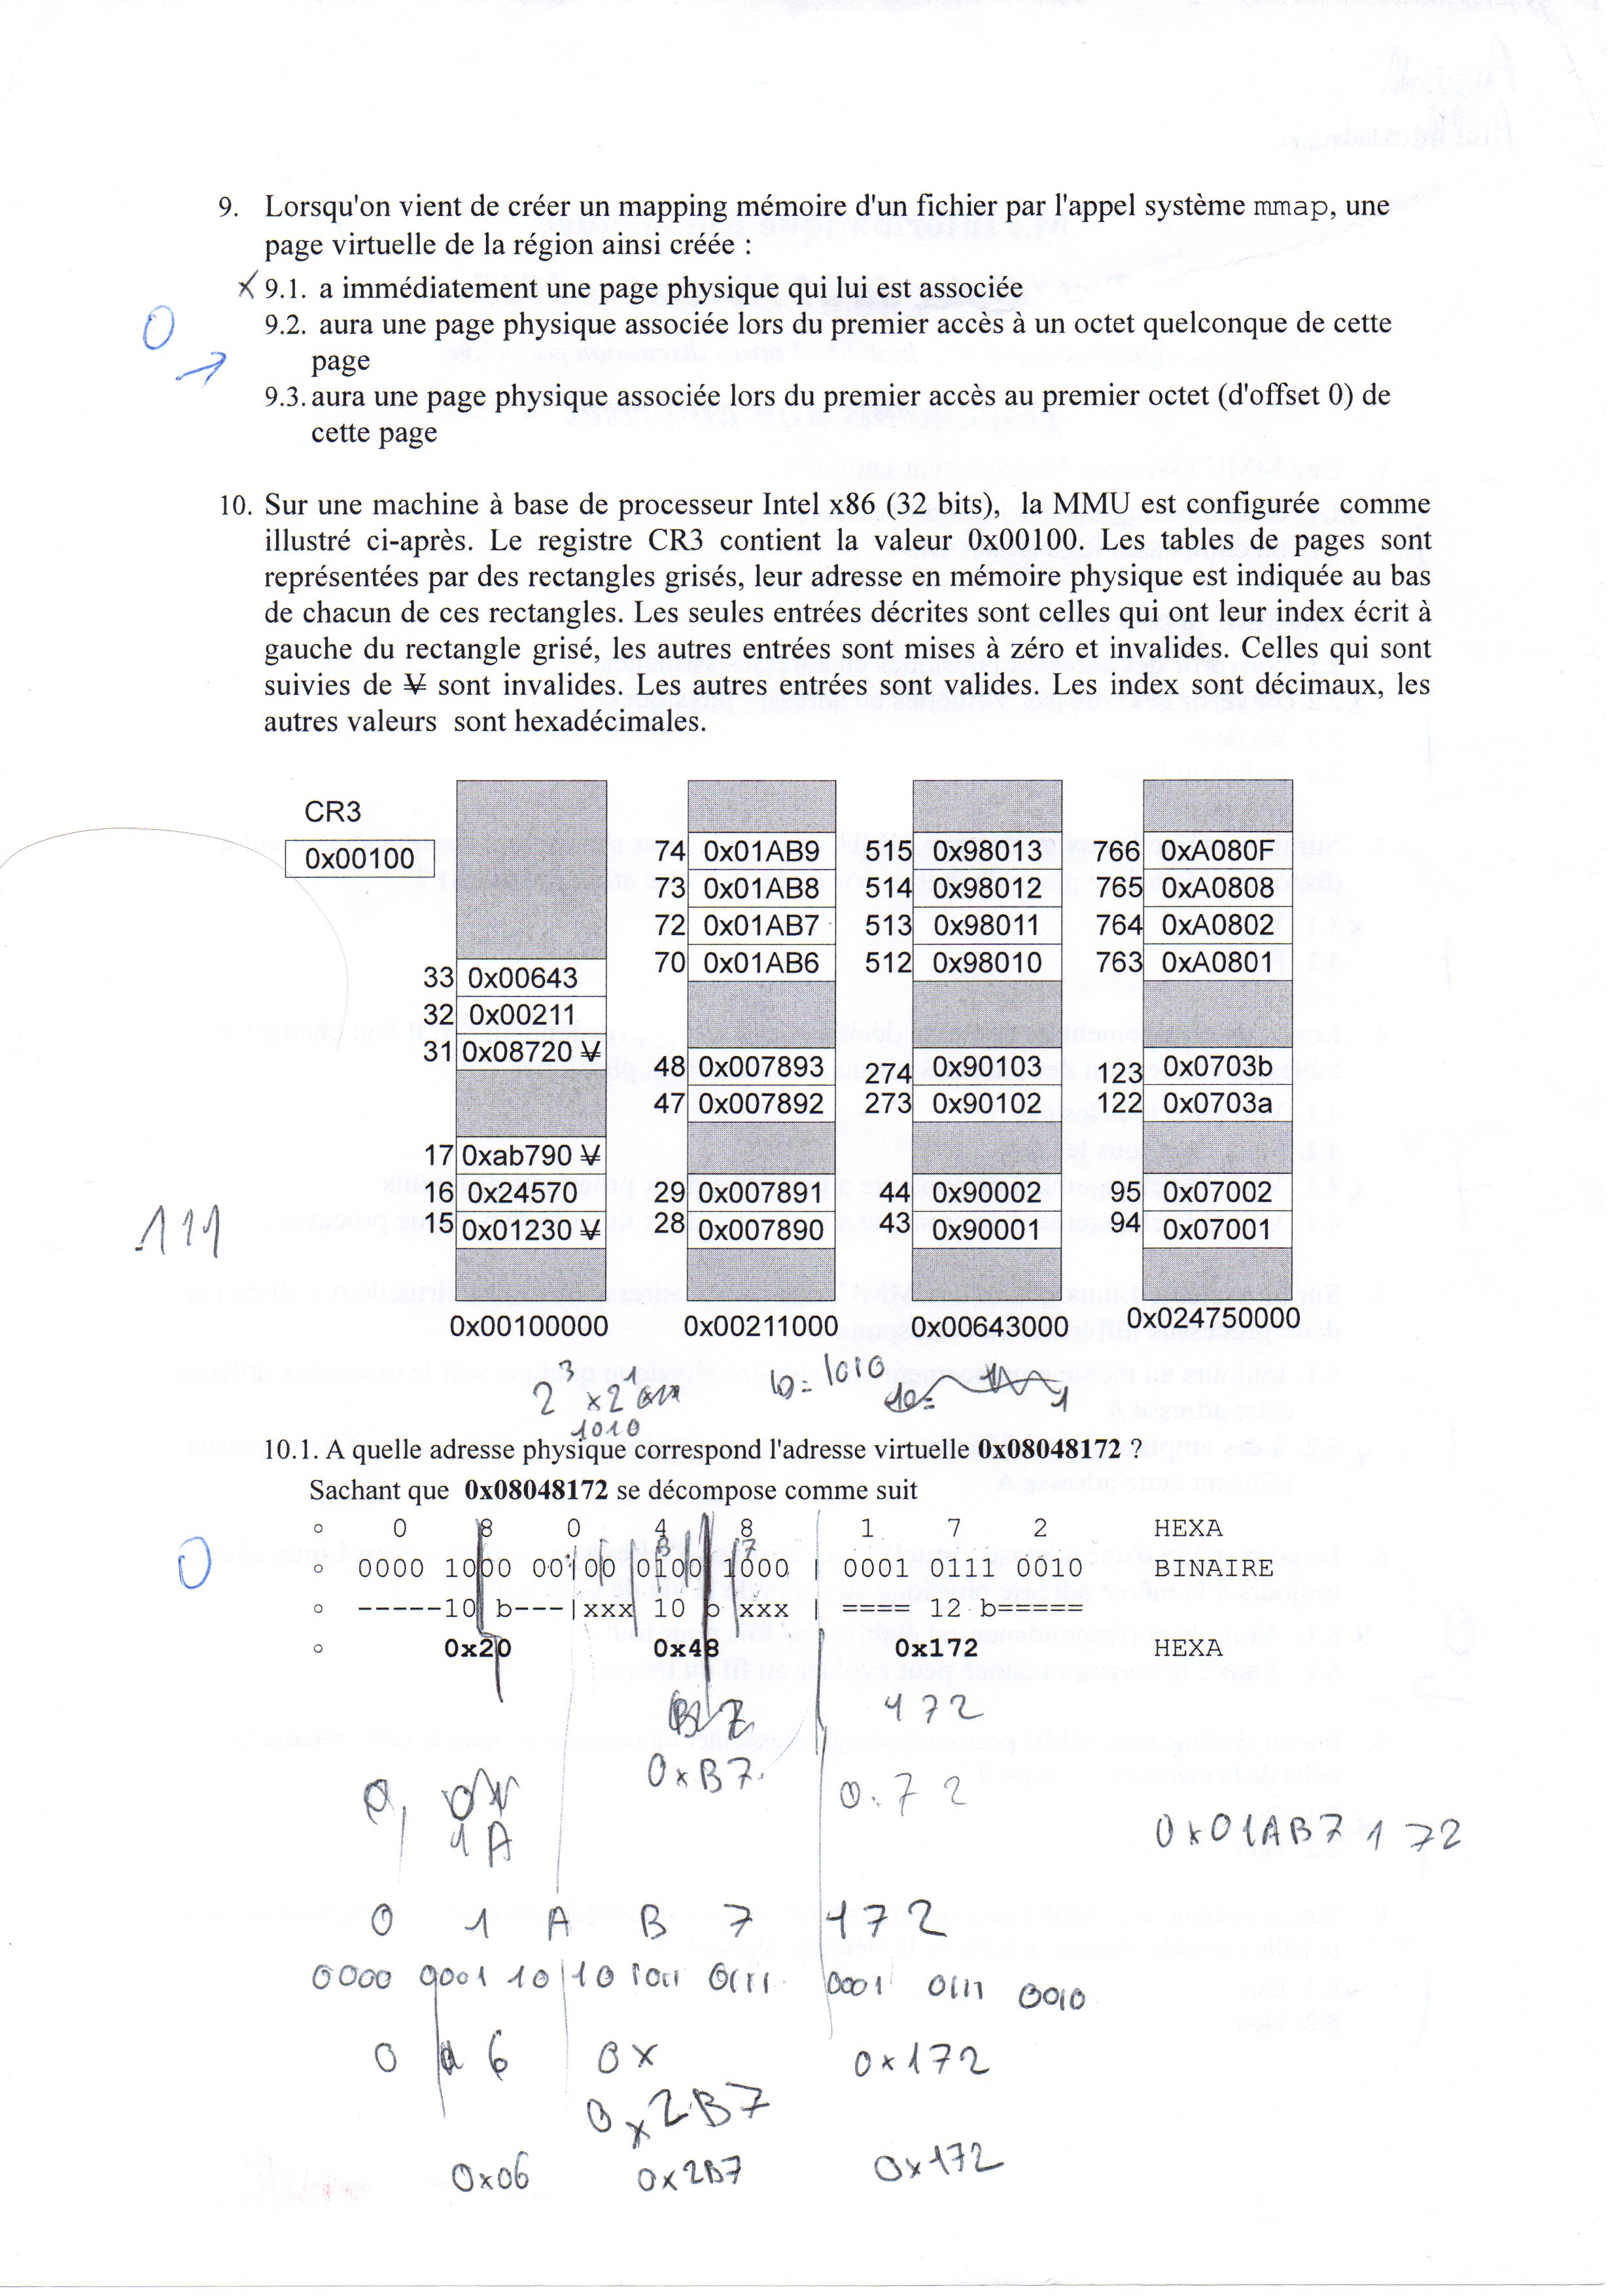 9. Lorsqu'on vient de créer un mapping mémoire d'un fichier par l'appel système mmap, une
page virtuelle de la région ainsi créée :
X 9.1. a immédiatement une page physique qui lui est associée
0 9.2. aura une page physique associée lors du premier accès à un octet quelconque de cette
page
9.3. aura une page physique associée lors du premier accès au premier octet (d'offset 0) de
cette page
10. Sur une machine à base de processeur Intel x86 (32 bits), la MMU est configurée comme
illustré ci-après. Le registre CR3 contient la valeur 0x00100. Les tables de pages sont
représentées par des rectangles grisés, leur adresse en mémoire physique est indiquée au bas
de chacun de ces rectangles. Les seules entrées décrites sont celles qui ont leur index écrit à
gauche du rectangle grisé, les autres entrées sont mises à zéro et invalides. Celles qui sont
suivies de V̶ sont invalides. Les autres entrées sont valides. Les index sont décimaux, les
autres valeurs sont hexadécimales.
CR3
0x00100
74 0x01AB9 515 0x98013 766 0xA080F
73 0x01AB8 514 0x98012 765 0xA0808
72 0x01AB7 513 0x98011 764 0xA0802
70 0x01AB6 512 0x98010 763 0xA0801
33 0x00643
32 0x00211
31 0x08720 V̶
48 0x007893 274 0x90103 123 0x0703b
47 0x007892 273 0x90102 122 0x0703a
17 0xab790 V̶
16 0x24570 29 0x007891 44 0x90002 95 0x07002
15 0x01230 V̶ 28 0x007890 43 0x90001 94 0x07001
111
0x00100000 0x00211000 0x00643000 0x024750000
2³ x2¹ 10= 1010
1010
10.1. A quelle adresse physique correspond l'adresse virtuelle 0x08048172 ?
Sachant que 0x08048172 se décompose comme suit
○ 0 8 0 4 8 1 7 2 HEXA
B 7
0 ○ 0000 1000 00|00 0100 1000 | 0001 0111 0010 BINAIRE
○ -----10 b---|xxx 10 b xxx | ==== 12 b=====
○ 0x20 0x48 0x172 HEXA
172
0xB7
0.72
1A
0x01AB7172
0 1 A B 7 172
0000 0001 10|10 1011 0111 0001 0111 0010
0 6 0x 0x172
0x2B7
0x06 0x2B7 0x172